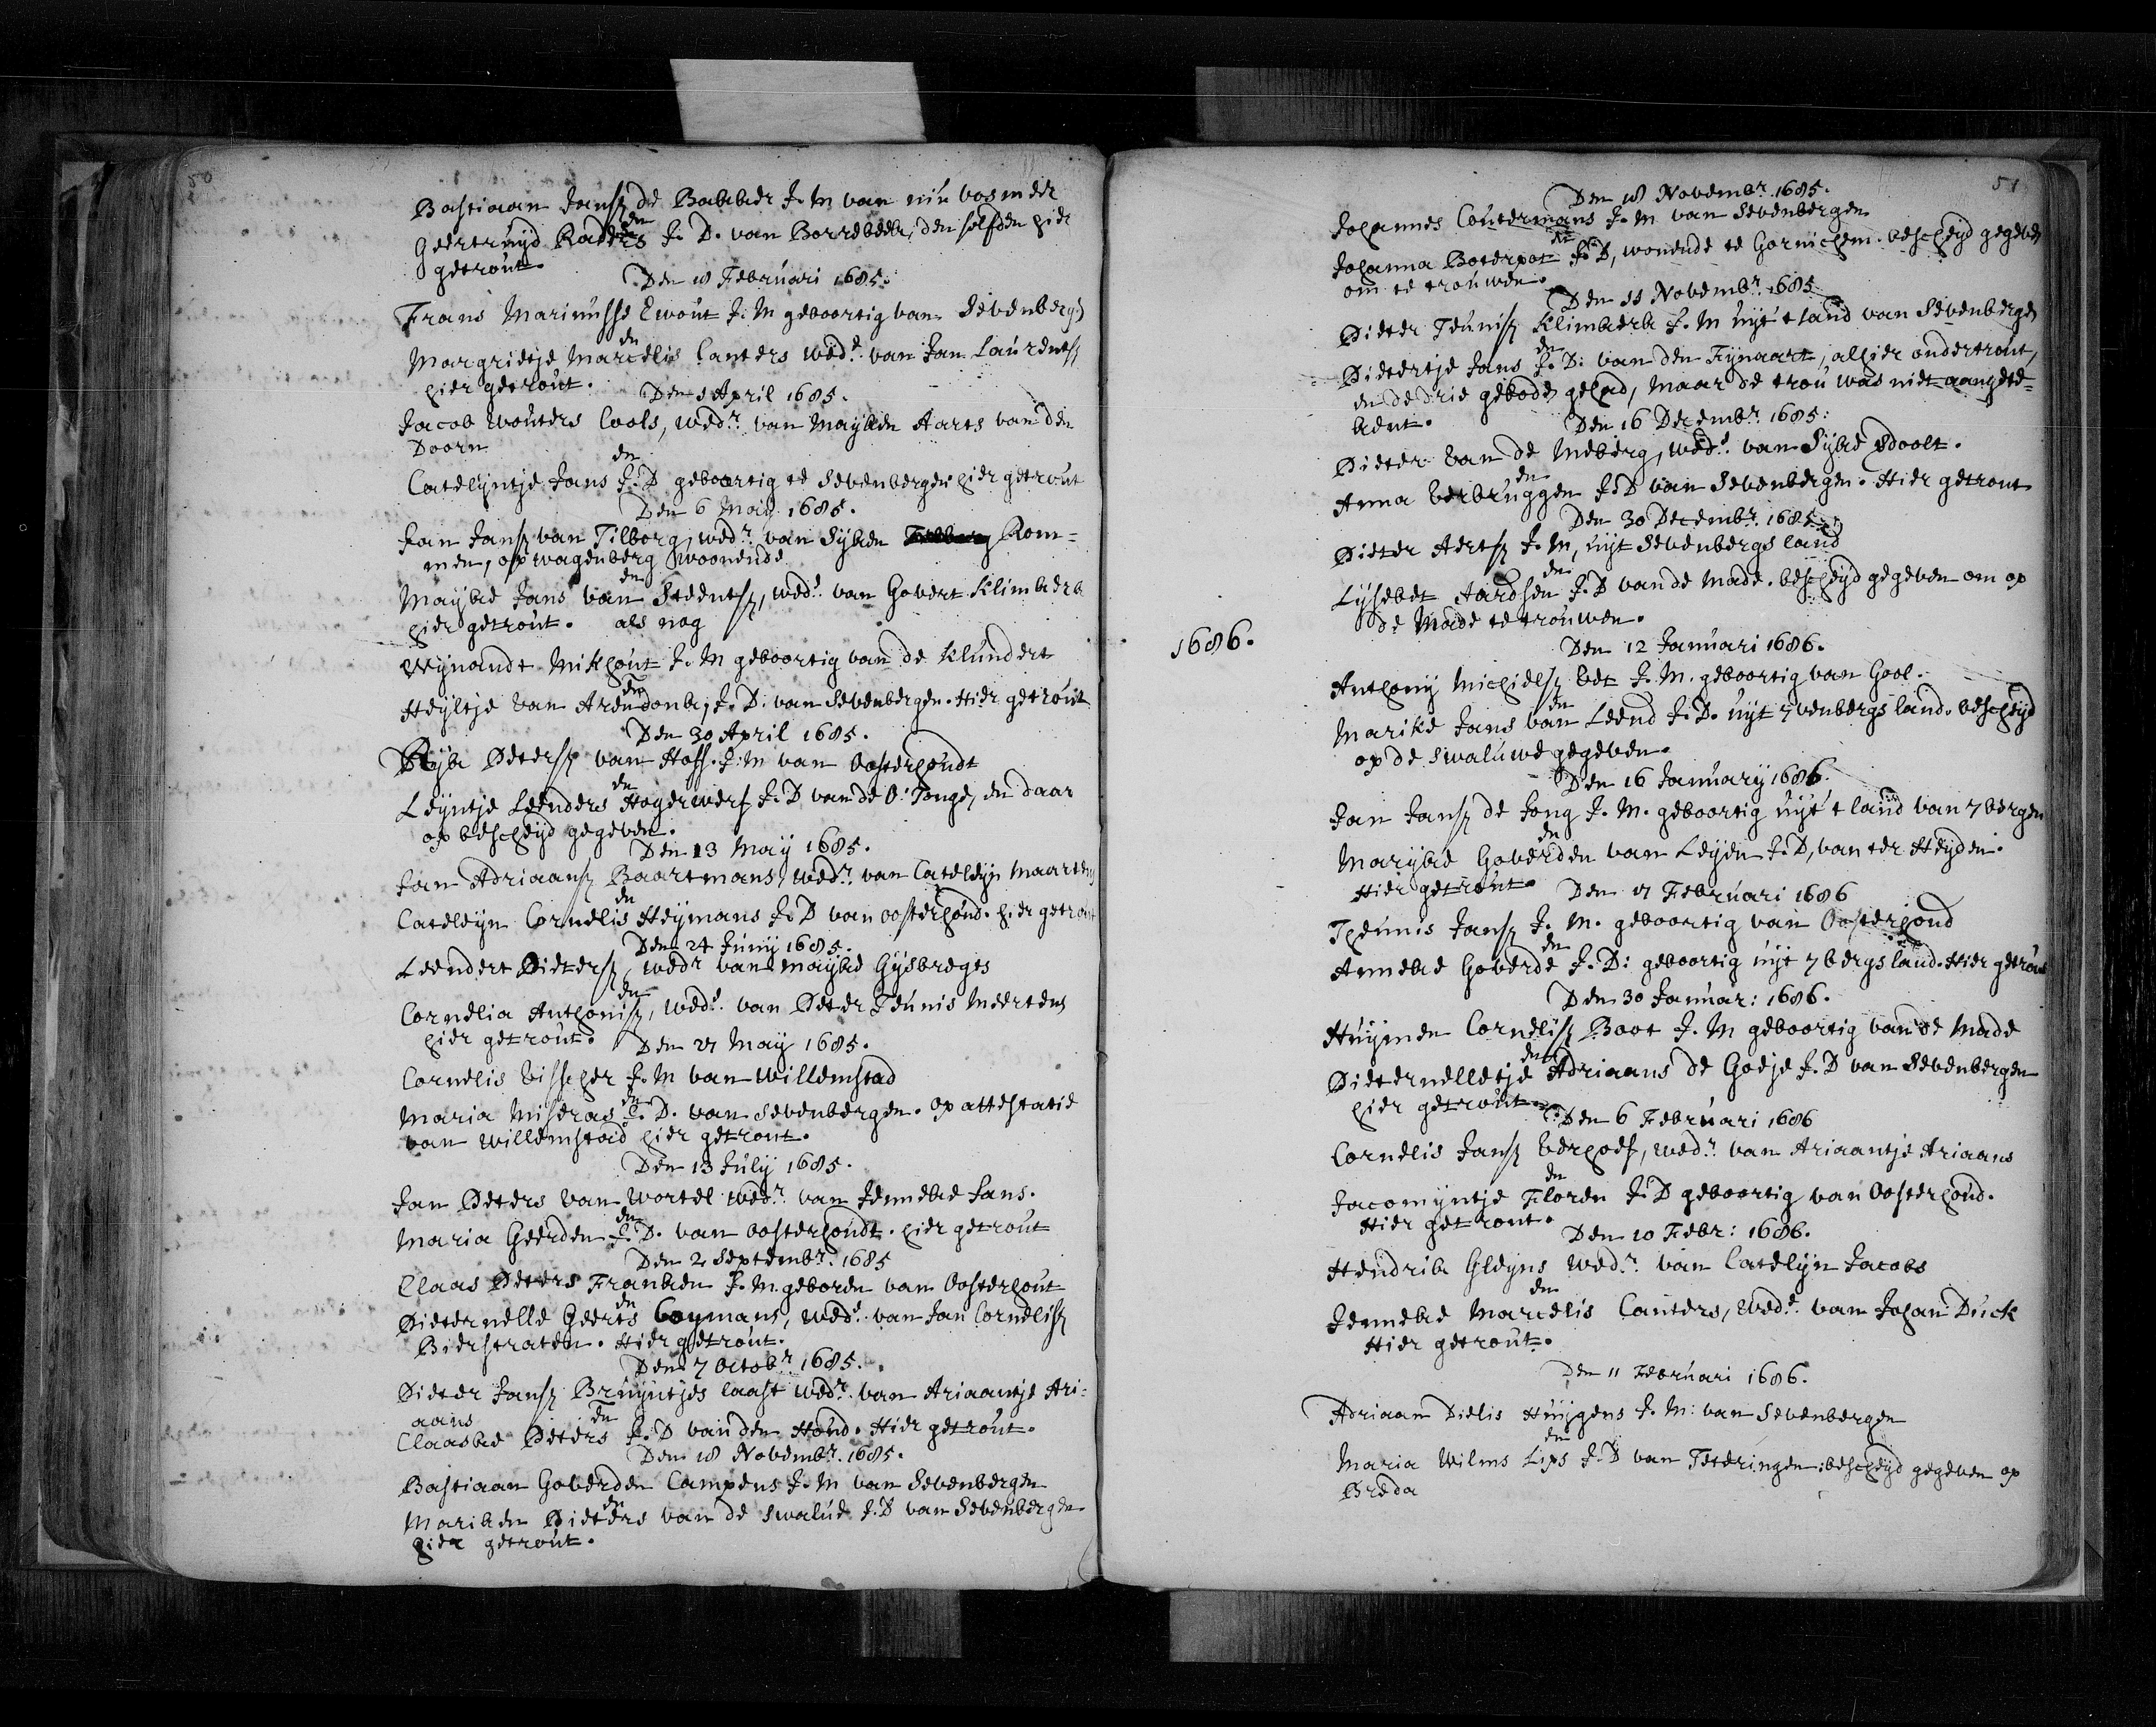 50
Bastiaan Jansz de Bakker J. M van niu vosmeer
en
Geertruyd Raders J. D. van Borrebeek, den selfden hier
getrout.
Den 18 Februari 1685.
Frans Marinusse Ewout J: M geboortig van Sevenberge
en
Margrietje Marcelis Canters wed.e van Jan Laurensz
hier getrout.
Den 1 April 1685.
Jacob Wouters Cools, wed.r van Mayken Aarts van den
Doorn
en
Catelyntje Jans J. D geboortig te Sevenbergen hier getrout
Den 6 May 1685.
Jan Jansz van Tilborg, wed.r van Syken Rom=
men, op wagenberg woonende
en
Mayke Jans van Steentsz, wed.e van Govert Klimkerk
hier getrout. als nog
Wynandt Mikhout J. M geboortig van de Klundert
en
Heyltje van Arendonk, J. D: van Sevenbergen. Hier getrout
Den 30 April 1685.
Ryk Petersz van Hoff. J: M van Oosterhoudt
en
Leyntje Leenders Hogerwerf J. D van de O: Tonge, en daar
op bescheyd gegeven.
Den 13 May 1685.
Jan Adriaansz Baartmans, wed.r van Cateleyn Maartens
en
Cateleyn Cornelis Heymans J. D van oosterhoud. hier getrout
Den 24 Juny 1685.
Leendert Pietersz, wedr van Mayke Gysbreges
en
Cornelia Anthonisz, wed.e van Peter Teunis Meertens
hier getrout.
Den 27 May 1685.
Cornelis Visscher J. M van Willemstad
en
Maria Miseras J. D. van Sevenbergen. op attestatie
van Willemstad hier getrout.
Den 13 July 1685.
Jan Peters van Wortel wed.r van Jenneke Jans.
en
Maria Geerden J. D. van Oosterhoudt. hier getrout
Den 2 Septemb.r 1685
Claas Peters Franken J. M. geboren van Oosterhout
en
Pieternelle Geerts Coymans, wed.e van Jan Cornelisz
Bierstraten. Hier getrout.
Den 7 Octob.r 1685.
Pieter Jansz Bruyntjes laast wed.r van Ariaantje Ari=
aans
en
Claaske Peters J. D van den Houd. Hier getrout.
Den 18 Novemb.r 1685.
Bastiaan Goverden Campens J. M van Sevenbergen
en
Mariken Pieters van de Swalue J. D van Sevenbergen
hier getrout.
51
Den 18 Novemb.r 1685.
Johannes Coutermans J. M van Sevenbergen
en
Johanna Boterpot J. D, wonende te Gornichem. bescheyd gegeven
om te trouwen.
Den 11 Novemb.r 1685
Pieter Teunisz Klimkerk J. M uyt 't land van Sevenbergen
en
Pietertje Jans J. D: van den Fynaart, alhier ondertrout,
en de drie geboden gehad, maar de trou was niet aangete=
kent.
Den 16 Decemb.r 1685:
Pieter van de Meberg, wed.r van Syke
en
Anna Verbruggen J. D van Sevenbergen. Hier getrout
Den 30 Decemb.r 1685.
Pieter Aertsz J. M, uyt Sevenbergs land
en
Lysebet Aardsen J. D van de Made. bescheyd gegeven om op
de Made te trouwen.
1686.
Den 12 Januari 1686.
Anthony Michielsz Vet J. M. geboortig van Gool.
en
Marike Jans van Leend J. D. uyt 7venbergs land. bescheyd
op de Swaluwe gegeven.
Den 16 January 1686.
Jan Jansz de Jong J. M. geboortig uyt 't land van 7bergen
en
Maryke Goverden van Leyen J. D, van ter Heyden.
Hier getrout.
Den 17 Februari 1686
Theunis Jansz J. M. geboortig van Oosterhoud
en
Anneke Goverde J. D: geboortig uyt 7bergs land. Hier getrout
Den 30 Januar: 1686.
Huymen Cornelisz Boot J. M geboortig van de Made
en
Pieternelletje Adriaans de Goeje J. D van Sevenbergen
hier getrout.
Den 6 Februari 1686
Cornelis Jansz Verhoef, wed.r van Ariaantje Ariaans
en
Jacomyntje Floren J. D geboortig van Oosterhoud.
Hier getrout.
Den 10 Febr: 1686.
Hendrik Gleyns wed.r van Catelyn Jacobs
en
Jenneke Marcelis Canters, wed.e van Johan Duck
Hier getrout.
Den 11 Februari 1686.
Adriaan Dielis Huygens J. M: van Sevenbergen
en
Maria Wilms Lips J. D van Teteringen: bescheyd gegeven op
Breda